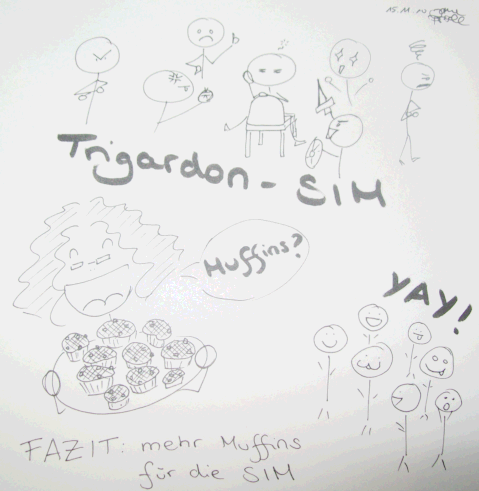 15.11.10
Trigardon-SIM
Muffins?
YAY!
FAZIT: mehr Muffins
für die SIM